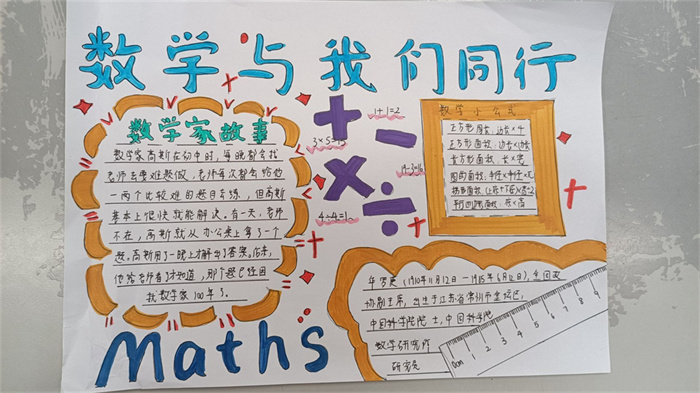 数学与我们同行
数学家故事
数学家高斯在初中时，每晚都会找
老师去要难题做，老师每次都会给他
一两个比较难的题目去练，但高斯
基本上很快就能解决。有一天，老师
不在，高斯就从办公桌上拿了一个
题。高斯用了一晚上才解出了答案。后来，
他给老师看了才知道，那个题已经困
扰数学家100年了。
1+1=2
3×5=15
4÷4=1
数学小公式
正方形周长：边长×4
正方形面积：边长×边长
长方形面积：长×宽
平行四边形面积：底×高
华罗庚（1910年11月12日—1985年6月12日），
协副主席，出生于江苏省常州市金坛区，
中国科学院院士，中国科学院
数学研究所
研究员
0cm 1 2 3 4 5 6 7 8 9
Maths